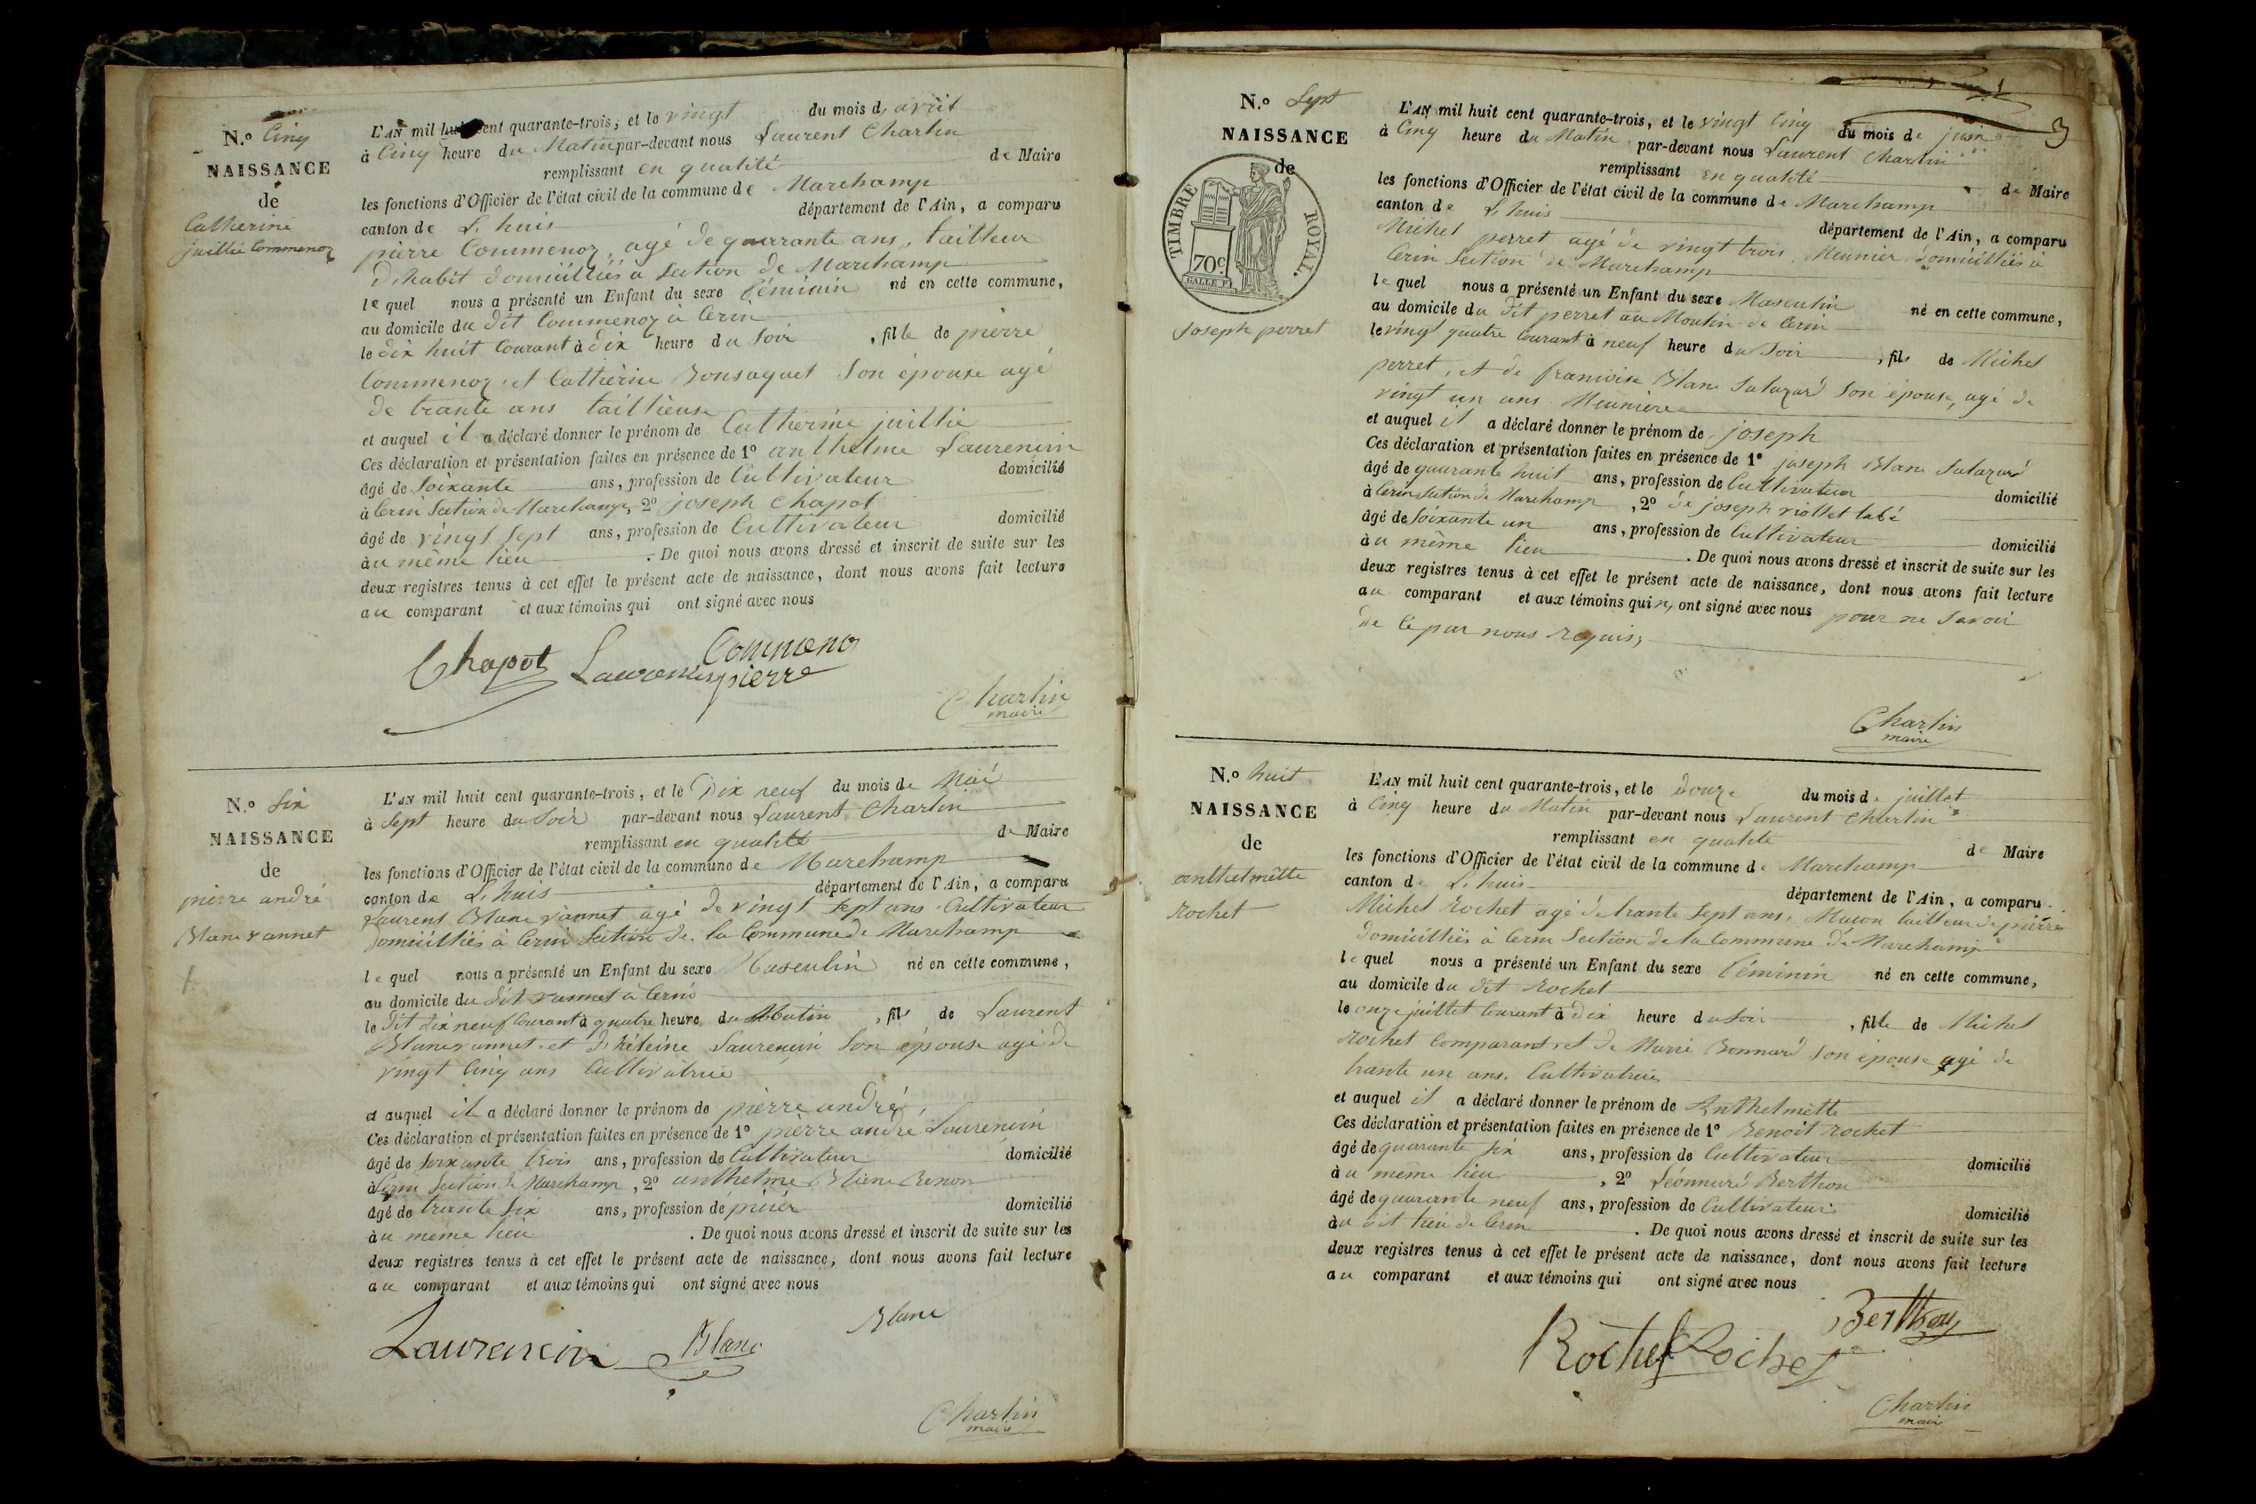 N.o Cinq
NAISSANCE
de
Catherine
juillie Commenoz
L'AN mil huit cent quarante-trois, et le vingt du mois d avril
à Cinq heure du Matin par-devant nous Laurent Charlin
remplissant en qualité de Maire
les fonctions d'Officier de l'état civil de la commune de Marchamp
canton de L. huis département de l'Ain, a comparu
pierre Commenoz, agé de quarante ans, tailleur
D. habit domicilliés a Section de Marchamp
lequel nous a présenté un Enfant du sexe féminin né en cette commune,
au domicile du dit Commenoz à Cerin
le dix huit Courant à dix heure du Soir, fille de pierre
Commenoz, et Catherine Bonsaquet Son épouse agé
de trante ans taillieuse
et auquel il a déclaré donner le prénom de Catherine juillie
Ces déclaration et présentation faites en présence de 1o anthelme Laurencin
âgé de Soixante ans, profession de Cultivateur domicilié
à Cerin Section de Marchamp, 2o joseph Chapot
âgé de vingt Sept ans, profession de Cultivateur domicilié
au même lieu. De quoi nous avons dressé et inscrit de suite sur les
deux registres tenus à cet effet le présent acte de naissance, dont nous avons fait lecture
au comparant et aux témoins qui ont signé avec nous
Chapot Laurencin Commenoz pierre
Charlin
maire
N.o Six
NAISSANCE
de
pierre andré
Blanc vannet
L'AN mil huit cent quarante-trois, et le Dix neuf du mois de Mai
à Sept heure du Soir par-devant nous Laurent Charlin
remplissant en qualité de Maire
les fonctions d'Officier de l'état civil de la commune de Marchamp
canton de L. huis département de l'Ain, a comparu
Laurent Blanc vannet agé de vingt Sept ans Cultivateur
domicilliés à Cerin Section de la Commune de Marchamp
lequel nous a présenté un Enfant du sexe Masculin né en cette commune,
au domicile du dit vannet à Cerin
le Dit dix neuf Courant à quatre heure du Matin, fils de Laurent
Blanc vannet et d'héleine Laurencin Son épouse agé de
vingt Cinq ans Cultivatrice
et auquel il a déclaré donner le prénom de pierre andré
Ces déclaration et présentation faites en présence de 1o pierre andré Laurencin
âgé de Soixante trois ans, profession de Cultivateur domicilié
à Cerin Section de Marchamp, 2o anthelme Blanc
âgé de trante Six ans, profession de domicilié
au même lieu. De quoi nous avons dressé et inscrit de suite sur les
deux registres tenus à cet effet le présent acte de naissance, dont nous avons fait lecture
au comparant et aux témoins qui ont signé avec nous
Laurencin Blanc Blanc
Charlin
maire
3
N.o Sept
NAISSANCE
de
TIMBRE ROYAL.
70c
joseph perret
L'AN mil huit cent quarante-trois, et le vingt Cinq du mois de juin
à Cinq heure du Matin par-devant nous Laurent Charlin
remplissant en qualité de Maire
les fonctions d'Officier de l'état civil de la commune de Marchamp
canton de L. huis département de l'Ain, a comparu
Michel perret agé de vingt trois, Meunier domicilliés à
Cerin Section de Marchamp
lequel nous a présenté un Enfant du sexe Masculin né en cette commune,
au domicile du Dit perret au Moulin de Cerin
le vingt quatre Courant à neuf heure du Soir, fils de Michel
perret, et de franicoise Blanc Salazard Son épouse, agé de
vingt un ans Meunière
et auquel il a déclaré donner le prénom de joseph
Ces déclaration et présentation faites en présence de 1o joseph Blanc Salazard
âgé de quarante huit ans, profession de Cultivateur domicilié
à Cerin Section de Marchamp, 2o de joseph riottet
âgé de Soixante un ans, profession de Cultivateur domicilié
au même lieu. De quoi nous avons dressé et inscrit de suite sur les
deux registres tenus à cet effet le présent acte de naissance, dont nous avons fait lecture
au comparant et aux témoins qui n, ont signé avec nous pour ne Savoir
de Ce par nous requis,
Charlin
maire
N.o huit
NAISSANCE
de
anthelmette
Rochet
L'AN mil huit cent quarante-trois, et le douze du mois de juillet
à Cinq heure du Matin par-devant nous Laurent Charlin
remplissant en qualité de Maire
les fonctions d'Officier de l'état civil de la commune de Marchamp
canton de L. huis département de l'Ain, a comparu
Michel Rochet agé de trante Sept ans, Macon tailleur de pierre
domicilliés à Cerin Section de la Commune de Marchamp
lequel nous a présenté un Enfant du sexe féminin né en cette commune,
au domicile du dit Rochet
le onze juillet Courant à dix heure du Soir, fille de Michel
Rochet Comparant et de Marie Bonnard Son épouse agé de
trante un ans. Cultivatrice
et auquel il a déclaré donner le prénom de Anthelmette
Ces déclaration et présentation faites en présence de 1o Benoit Rochet
âgé de quarante Six ans, profession de Cultivateur domicilié
au même lieu, 2o Léonnard Berthou
âgé de quarante neuf ans, profession de Cultivateur domicilié
au dit lieu de Cerin. De quoi nous avons dressé et inscrit de suite sur les
deux registres tenus à cet effet le présent acte de naissance, dont nous avons fait lecture
au comparant et aux témoins qui ont signé avec nous
Rochet Rochet Berthou
Charlin
maire